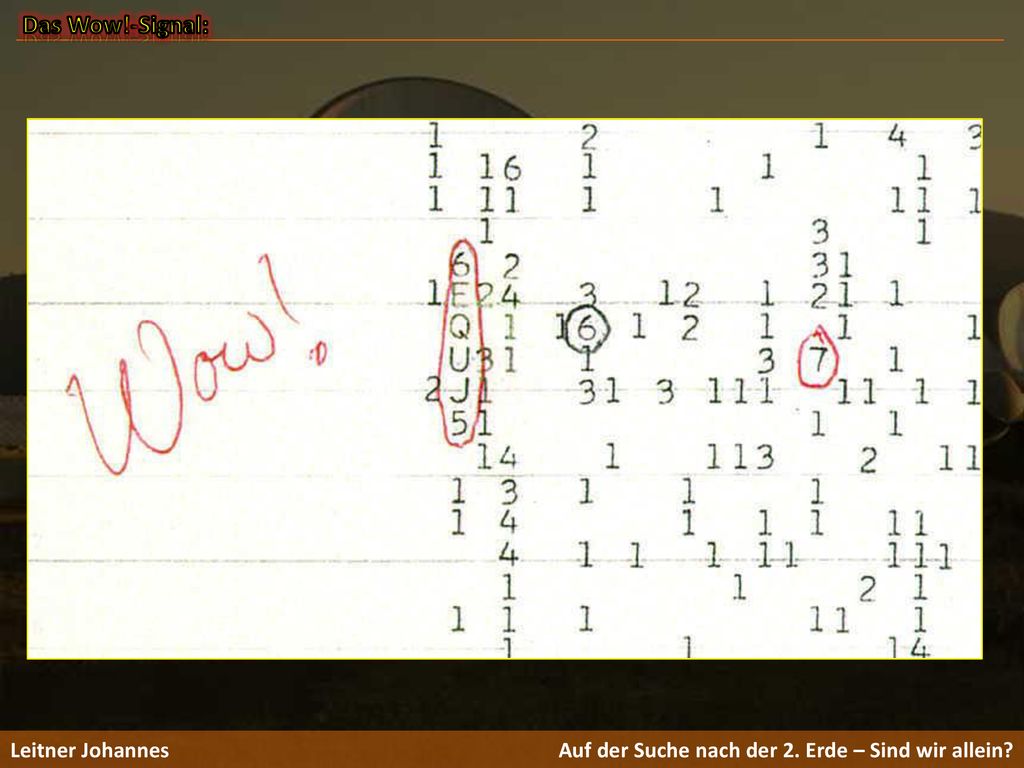 Das Wow!-Signal:
1 2 1 4 3
1 16 1 1 1
1 11 1 1 11 1
1 3 1
6 2 31
1E24 3 12 1 21 1
Q 1 16 1 2 1 1 1
Wow!
U31 1 3 7 1
2J1 31 3 111 11 1 1
51 1 1
14 1 113 2 11
1 3 1 1 1
1 4 1 1 1 11
4 1 1 1 11 111
1 1 2 1
1 1 1 11 1
1 1 14
Leitner Johannes
Auf der Suche nach der 2. Erde – Sind wir allein?